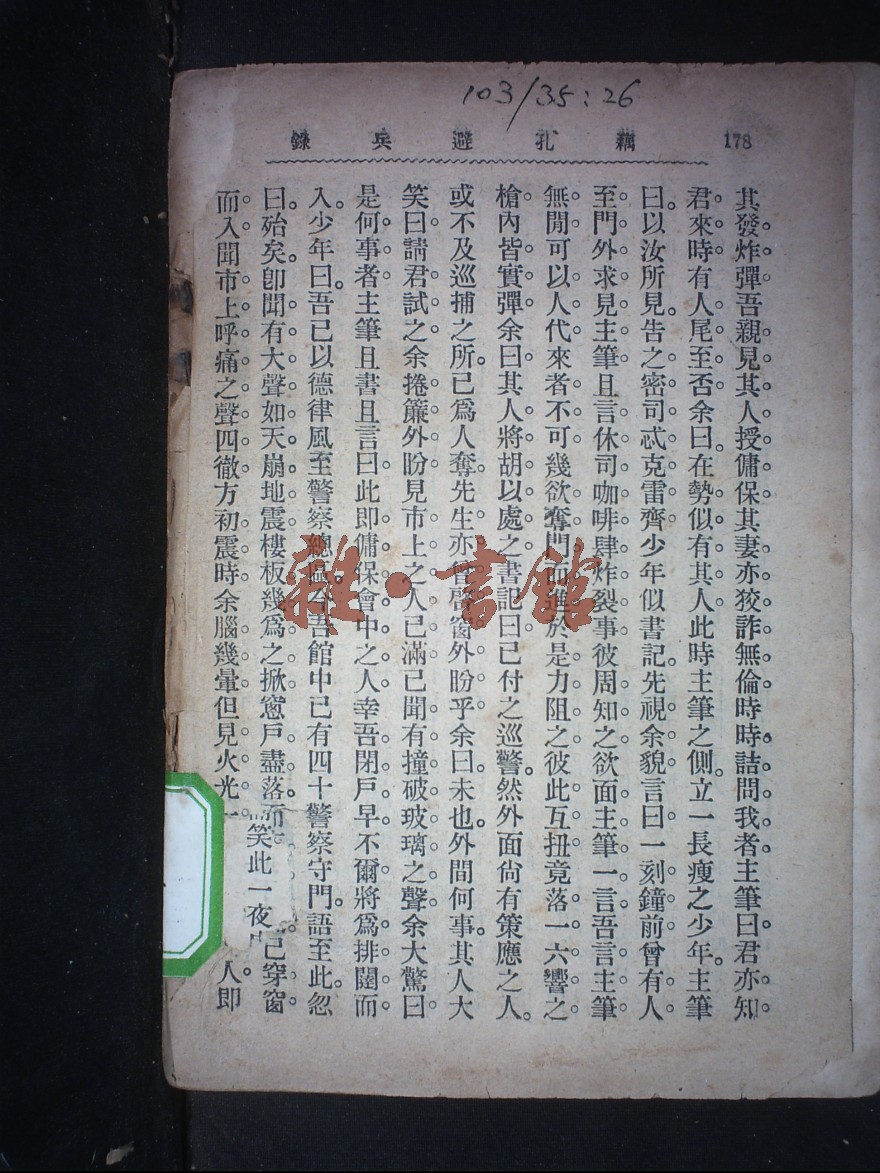 103/35:26
178 藕孔避兵錄
其發炸彈吾親見其人授傭保其妻亦狡詐無倫時時詰問我者主筆曰君亦知
君來時有人尾至否余曰在勢似有其人此時主筆之側立一長瘦之少年主筆
曰以汝所見告之密司忒克雷齊少年似書記先視余貌言曰一刻鐘前曾有人
至門外求見主筆且言休司咖啡肆炸裂事彼周知之欲面主筆一言吾言主筆
無閒可以人代來者不可幾欲奪門而進於是力阻之彼此互扭竟落一六響之
槍內皆實彈余曰其人將胡以處之書記曰已付之巡警然外面尙有策應之人
或不及巡捕之所已爲人奪先生亦曾啓窗外盼乎余曰未也外間何事其人大
笑曰請君試之余捲簾外盼見市上之人已滿已聞有撞破玻璃之聲余大驚曰
是何事者主筆且書且言曰此卽傭保會中之人幸吾閉戶早不爾將爲排闥而
入少年曰吾已以德律風至警察總區今吾館中已有四十警察守門語至此忽
曰殆矣卽聞有大聲如天崩地震樓板幾爲之掀窻戶盡落而 已穿窗
而入聞市上呼痛之聲四徹方初震時余腦幾暈但見火光一 人卽
笑此一夜
雜·書館